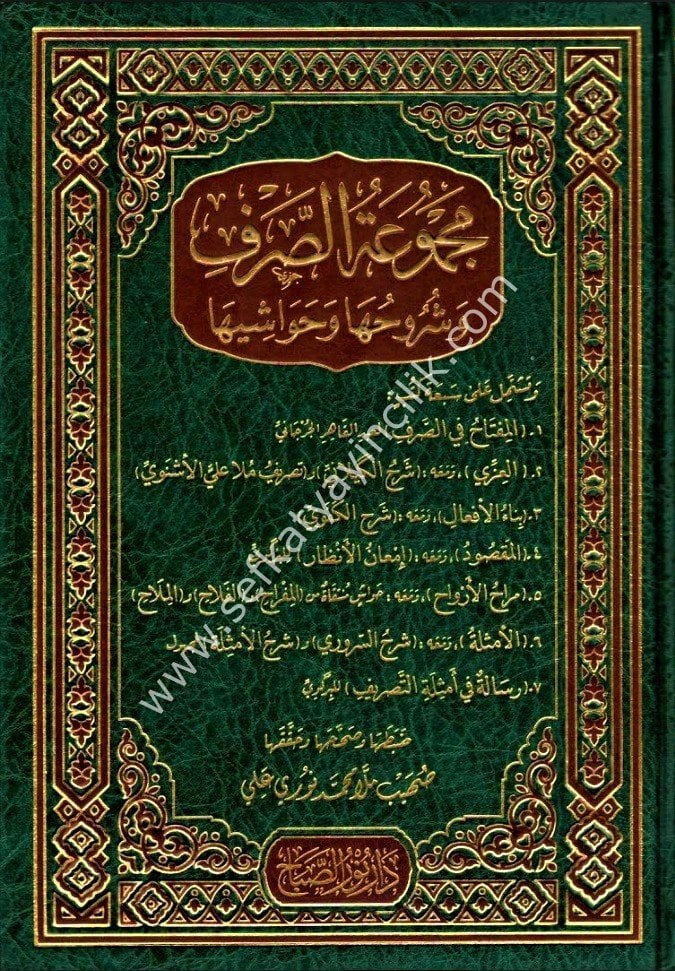 مجموعة الصرف
وشروحها وحواشيها
وتشتمل على سبعة
١. (المفتاح في الصرف) القاهر الجرجاني
٢. (العزي)، ومعه: (شرح) و(تصريف ملا علي الأشنوي)
٣. (بناء الأفعال)، ومعه: (شرح)
٤. (المقصود)، ومعه: (إمعان الأنظار)
٥. (مراح الأرواح)، ومعه: حواش منتقاة من (المفراح) و(الفلاح) و(الملاح)
٦. (الأمثلة)، ومعه: (شرح السروري) و(شرح الأمثلة)
٧. (رسالة في أمثلة التصريف) للبركوي
ضبطها وصححها وحققها
صهيب ملا محمد نوري علي
دار نور الصباح
www.sefkatyayincilik.com